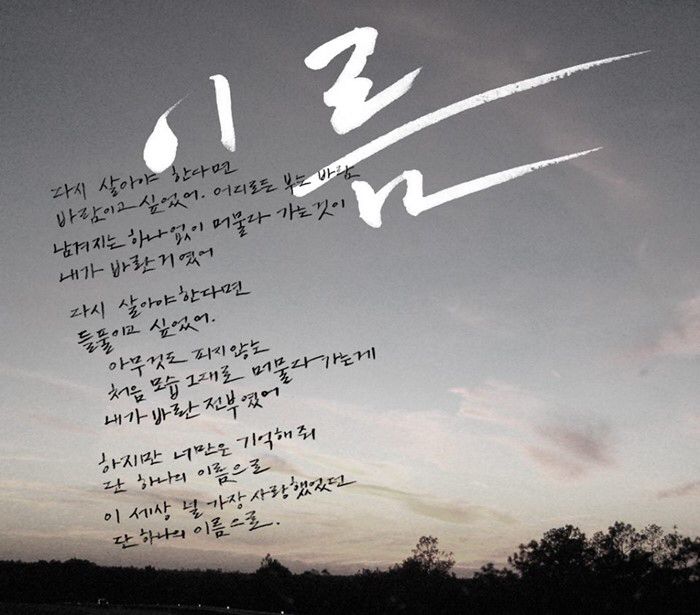 이름
다시 살아야 한다면
바람이고 싶었어. 어디로든 부는 바람
남겨지는 하나 없이 머물다 가는 것이
내가 바란 거였어
다시 살아야 한다면
들풀이고 싶었어.
아무것도 피지 않는
처음 모습 그대로 머물다 가는 게
내가 바란 전부였어
하지만 너만은 기억해줘
단 하나의 이름으로
이 세상 널 가장 사랑했었던
단 하나의 이름으로.